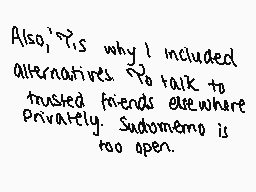 Also, 'T,s why I included
alternatives. To talk to
trusted friends elsewhere
privately. Sudomemo is
too open.